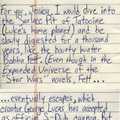 For you, Jenny, I would dive into
the Sarlacc Pit of Tatooine
(Luke's home planet) and be
slowly digested for a thousand
years, like the bounty hunter
Bobba Fett. (Even though in the
Expanded Universe of the
Star Wars novels, Fett ...
... eventually escapes, which
creator George Lucas has accepted
as official S.W.